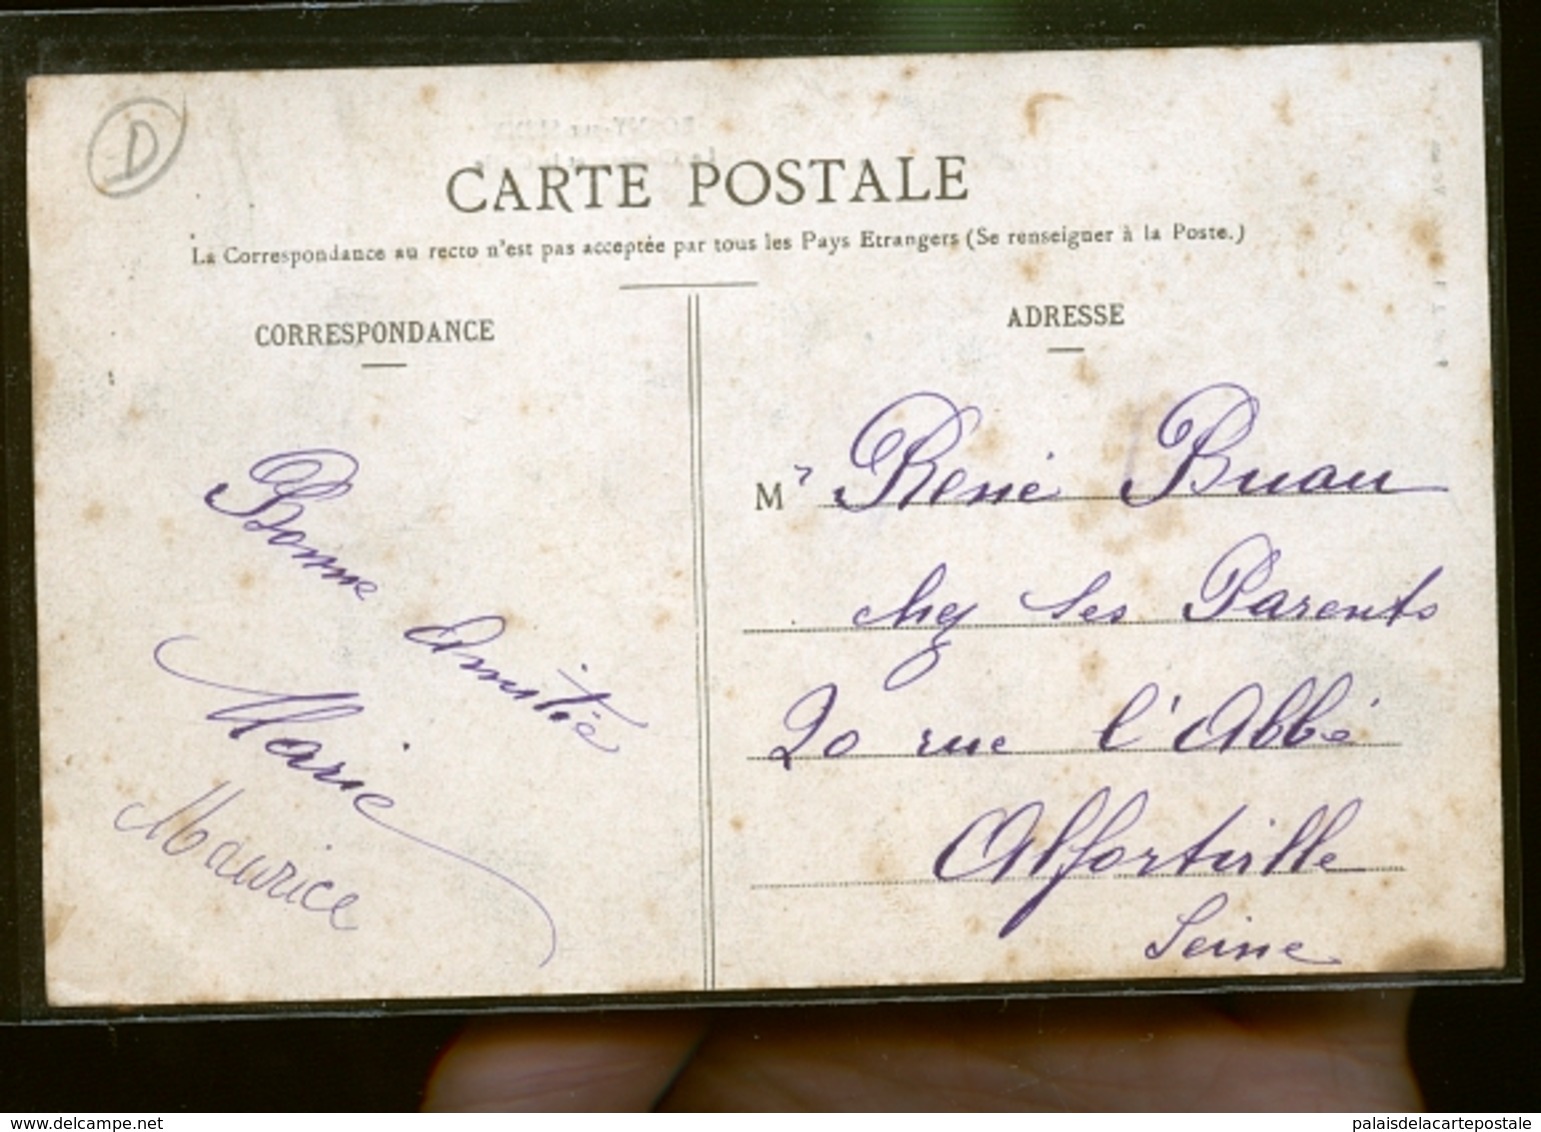 D
CARTE POSTALE
La Correspondance au recto n'est pas acceptée par tous les Pays Etrangers (Se renseigner à la Poste.)
CORRESPONDANCE
Bonne Amitié
Marie
Maurice
ADRESSE
Mr René Buau
chez ses Parents
20 rue l'Abbé
Alfortville
Seine
delcampe.net
palaisdelacartepostale